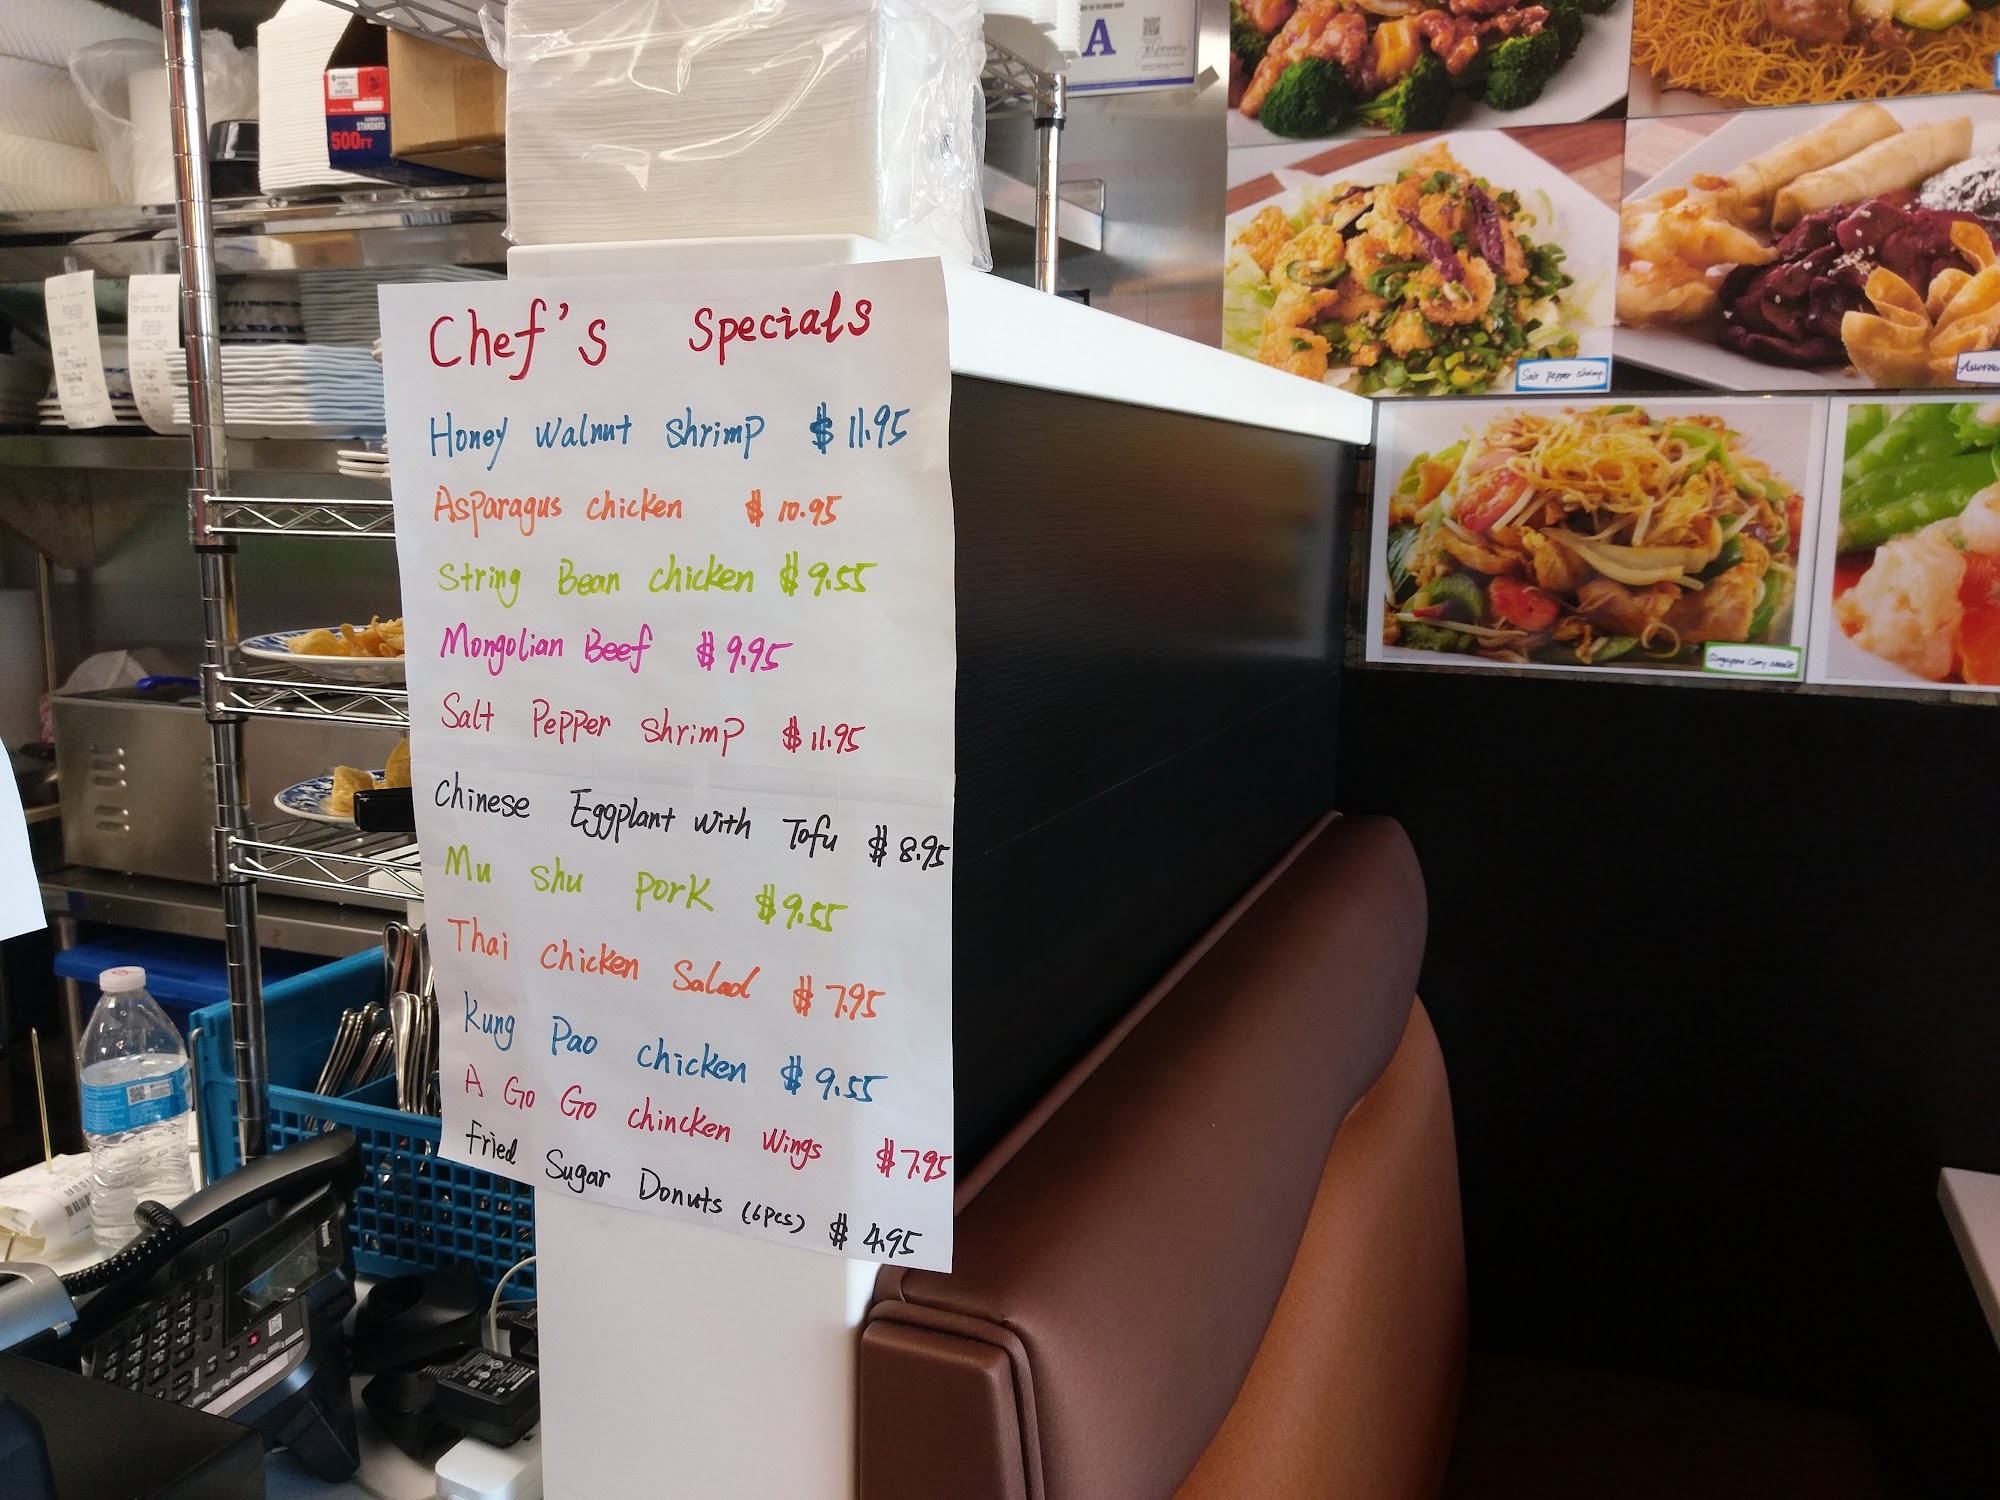 Chef's Specials
Honey Walnut Shrimp $ 11.95
Asparagus chicken $ 10.95
String Bean chicken $ 9.55
Mongolian Beef $ 9.95
Salt Pepper Shrimp $ 11.95
Chinese Eggplant with Tofu $ 8.95
Mu shu pork $ 9.55
Thai Chicken Salad $ 7.95
Kung Pao chicken $ 9.55
A Go Go chincken Wings $ 7.95
Fried Sugar Donuts (6pcs) $ 4.95
STANDARD
500FT
A
Salt pepper shrimp
Singapore Curry Noodle